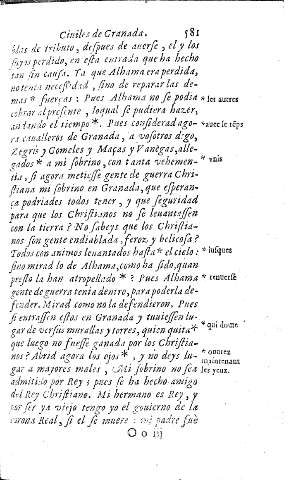 Ciuiles de Granada. 581
das de tributo, despues de auerse, el y los
suyos perdido, en esta entrada que ha hecho
tan sin causa. Ya que Alhama era perdida,
no tenta necessidad, sino de reparar las de-
mas * fuerças: Pues Alhama no se podia * les autres
cobrar al presente, loqual se pudiera hazer,
andando el tiempo *. Pues considerad ago- * auec le tẽps
ra caualleros de Granada, a vosotros digo,
Zegris y Gomeles y Maças y Vanegas, alle-
gados * a mi sobrino, con tanta vehemen- * vnis
tia, si agora metiesse gente de guerra Chri-
stiana mi sobrino en Granada, que esperan-
ça podriades todos tener, y que seguridad
para que los Christianos no se leuantassen
con la tierra? No sabeys que los Christia-
nos son gente endiablada, feroz y belicosa?
Todos con animos leuantados hasta * el cielo: * iusques
sino mirad lo de Alhama, como ha sido, quan
presto la han atropellado * ? Pues Alhama * renuersé
gente de guerra tenia dentro, para poderla de-
fender. Mirad como no la defendieron. Pues
si entrassen estos en Granada y tuuiessen lu-
gar de versus murallas y torres, quien quita * * qui doute
que luego no fuesse ganada por los Christia-
nos? Abrid agora los ojos *, y no deys lu- * ouurez
maintenant
gar a mayores males, Mi sobrino no sea les yeux.
admitido por Rey; pues se ha hecho amigo
del Rey Christiano. Mi hermano es Rey, y
por ser ya viejo tengo yo el gouierno de la
corona Real, si el se muere: mi padre fuè
O o iij